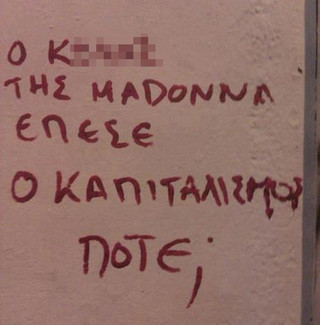 Ο
ΤΗΣ MADONNA
ΕΠΕΣΕ
Ο ΚΑΠΙΤΑΛΙΣΜΟΣ
ΠΟΤΕ;